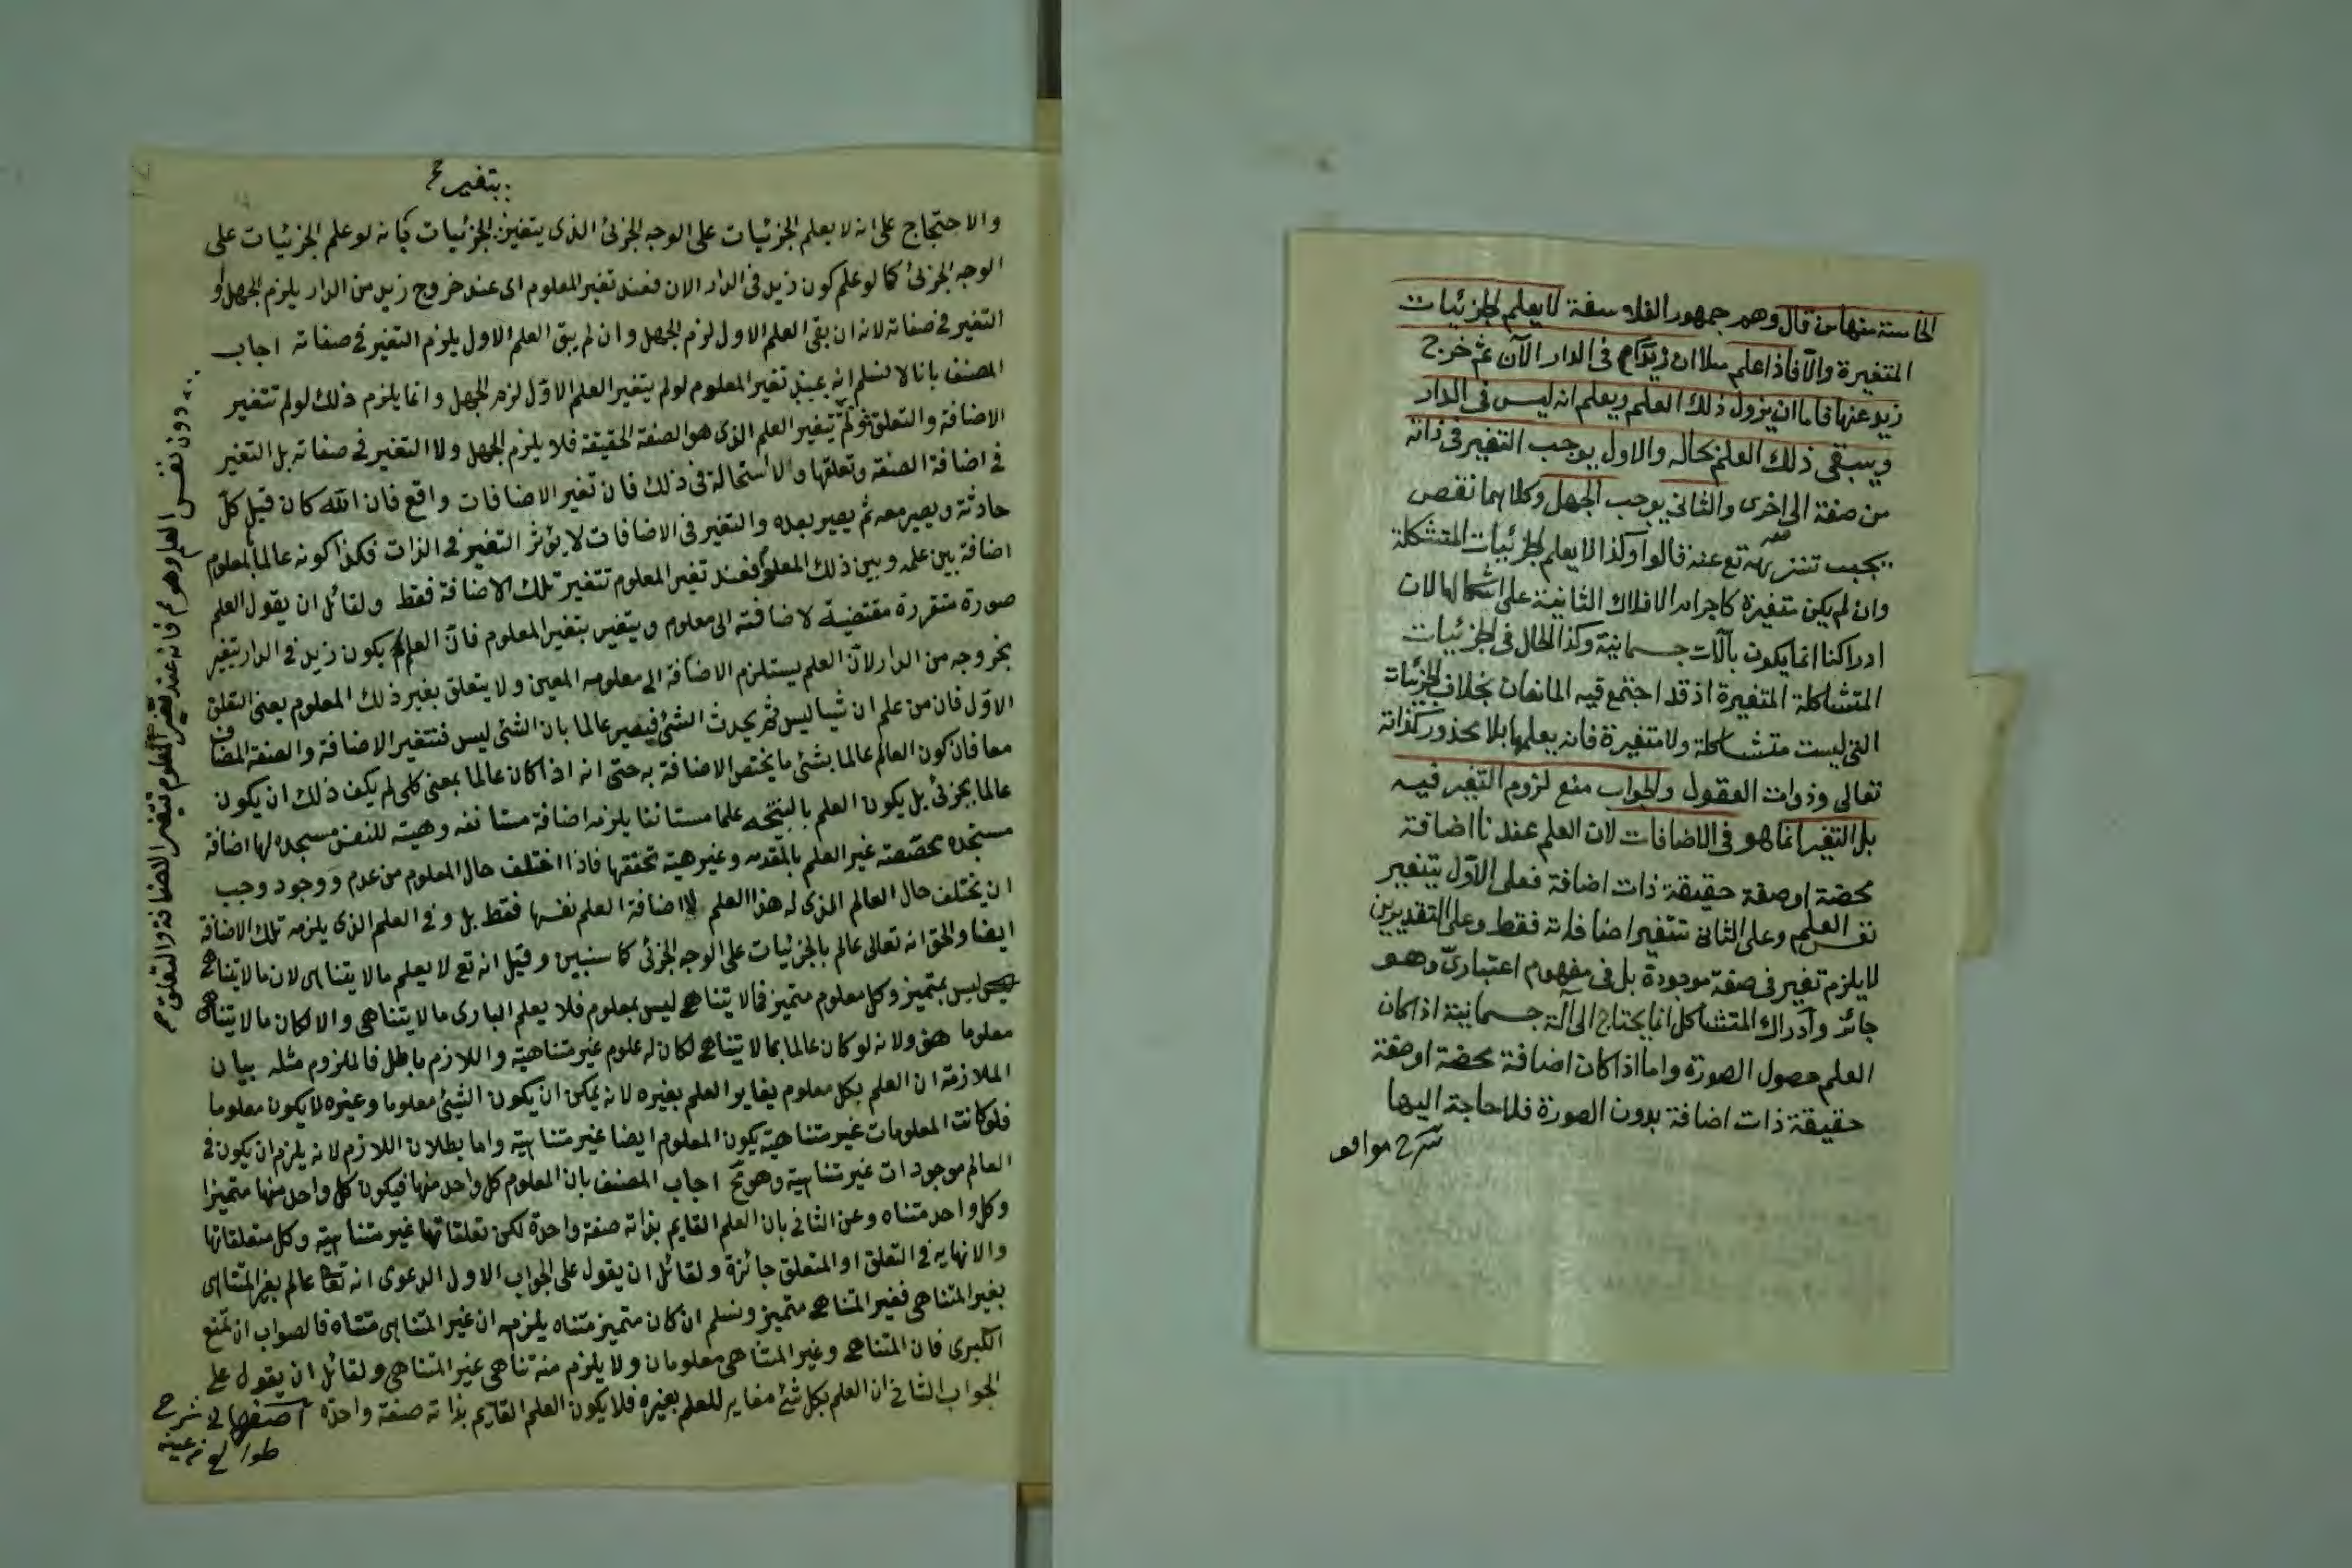 الخامسة منها من قال وهم جمهور الفلاسفة لا يعلم الجزئيات
المتغيرة والا فاذا علم مثلا ان زيدا في الدار الآن ثم خرج
زيد عنها فاما ان يزول ذلك العلم ويعلم انه ليس في الدار
ويبقى ذلك العلم بحاله والاول يوجب التغير في ذاته
من صفة الى اخرى والثاني يوجب الجهل وكلاهما نقص
يجب تنزيهه تع عنه قالوا وكذا لا يعلم الجزئيات المتشكلة
وان لم يكن متغيرة كاجرام الافلاك الثابتة على اشكالها لان
ادراكنا انما يكون بآلات جسمانية وكذا الحال في الجزئيات
المتشاكلة المتغيرة اذ قد اجتمع فيه المانعان بخلاف الجزئيات
التي ليست متشاكلة ولا متغيرة فانه يعلمها بلا محذور كذاته
تعالى وذوات العقول والجواب منع لزوم التغير فيه
بل التغير انما هو في الاضافات لان العلم عندنا اضافة
محضة او صفة حقيقة ذات اضافة فعلى الاول يتغير
نفس العلم وعلى الثاني تتغير اضافاته فقط وعلى التقديرين
لا يلزم تغير في صفة موجودة بل في مفهوم اعتباري وهو
جائز وادراك المتشاكل انما يحتاج الى آلة جسمانية اذا كان
العلم حصول الصورة واما اذا كان اضافة محضة او صفة
حقيقة ذات اضافة بدون الصورة فلا حاجة اليها
شرح مواقف
بتغير
والاحتجاج على انه لا يعلم الجزئيات على الوجه الجزئي الذي يتغير الجزئيات بانه لو علم الجزئيات على
الوجه الجزئي كما لو علم كون زيد في الدار الان فعند تغير المعلوم اى عند خروج زيد من الدار يلزم الجهل او
التغير في صفاته لانه ان بقي العلم الاول لزم الجهل وان لم يبق العلم الاول يلزم التغير في صفاته اجاب
المصنف بانا لا نسلم انه عند تغير المعلوم لو لم يتغير العلم الاول لزم الجهل وانما يلزم ذلك لو لم تتغير
الاضافة والتعلق ولم يتغير العلم الذي هو الصفة الحقيقة فلا يلزم الجهل ولا التغير في صفاته بل التغير
في اضافة الصفة وتعلقها ولا استحالة في ذلك فان تغير الاضافات واقع فان الله كان قبل كل
حادثة ويصير معه ثم يصير بعده والتغير في الاضافات لا يؤثر التغير في الذات فكذا كونه عالما بالمعلوم
اضافة بين علمه وبين ذلك المعلوم فعند تغير المعلوم تتغير تلك الاضافة فقط ولقائل ان يقول العلم
صورة متقررة مقتضية لاضافته الى معلوم ويتغير بتغير المعلوم فان العلم بكون زيد في الدار يتغير
بخروجه من الدار لان العلم يستلزم الاضافة الى معلومه المعين ولا يتعلق بغير ذلك المعلوم بعين التعلق
الاول فان من علم ان شيئا ليس ثم يحدث الشئ فيصير عالما بان الشئ ليس فتتغير الاضافة والصفة المضاف
معا فان كون العالم عالما بشئ ما يختص الاضافة به حتى انه اذا كان عالما بمعنى كلي لم يكف ذلك ان يكون
عالما بجزئي بل يكون العلم بالنتيجة علما مستانفا يلزمه اضافة مستانفه وهيئة للنفس مستجده لها اضافة
مستجده مخصصة غير العلم بالمقدمه وغير هيئة تحققها فاذا اختلف حال المعلوم من عدم ووجود وجب
ان يختلف حال العالم الذي له هذا العلم لا اضافة العلم نفسها فقط بل وفي العلم الذي يلزمه تلك الاضافة
ايضا والحق انه تعالى عالم بالجزئيات على الوجه الجزئي كما سنبين وقيل انه تع لا يعلم ما لا يتناهى لان ما لا يتناهى
ليس بمتميز وكل معلوم متميز فما لا يتناهى ليس بمعلوم فلا يعلم البارى ما لا يتناهى والا لكان ما لا يتناهى
معلوما هف ولانه لو كان عالما بما لا يتناهى لكان له علوم غير متناهية واللازم باطل فالملزوم مثله بيان
الملازمة ان العلم بكل معلوم يغاير العلم بغيره لانه يمكن ان يكون الشئ معلوما وغيره لا يكون معلوما
فلو كانت المعلومات غير متناهية يكون المعلوم ايضا غير متناهية واما بطلان اللازم لانه يلزم ان يكون في
العالم موجودات غير متناهية وهو مح اجاب المصنف بان المعلوم كل واحد منها فيكون كل واحد منها متميزا
وكل واحد متناه وعن الثاني بان العلم القايم بذاته صفة واحدة لكن تعلقاتها غير متناهية وكل متعلقاتها
والانهايه في التعلق او المتعلق جائزة ولقائل ان يقول على الجواب الاول الدعوى انه تعا عالم بغير المتناهى
بغير المتناهى فغير المتناهى متميز ونسلم ان كان متميز متناه يلزم ان غير المتناهى متناه فالصواب ان نمنع
الكبرى فان المتناهى وغير المتناهى معلومان ولا يلزم منه تناهى غير المتناهى ولقائل ان يقول على
الجواب الثاني ان العلم بكل شئ مغاير للعلم بغيره فلا يكون العلم القايم بذاته صفة واحدة اصفهانى شرح
طوالع من عينه
دون نفس العلم وهو فانه عند تغير المعلوم تتغير الاضافة والتعلق